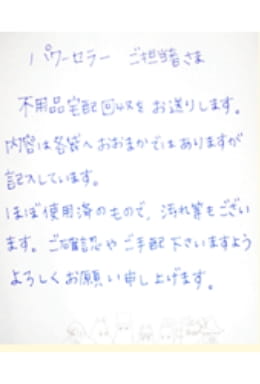 パワーセラー ご担当者さま
不用品宅配回収をお送りします。
内容は各袋へおおまかではありますが
記入しています。
ほぼ使用済のもので、汚れ等もござい
ます。ご確認やご手配下さいますよう
よろしくお願い申し上げます。